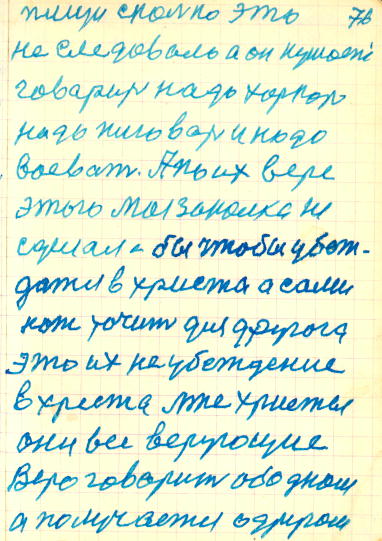 76
пищи сколко это
не следовало а он
говарит надо хорхор
надо пиговари и надо
воеват. А по их вере
этого Мы законка не
сделал а бы чтобы убеж-
датя в христа а сами
нож точит для другога
это их не убеждение
в христа мне христя
они все верующие
Вера говорит об одном
а получается о другом